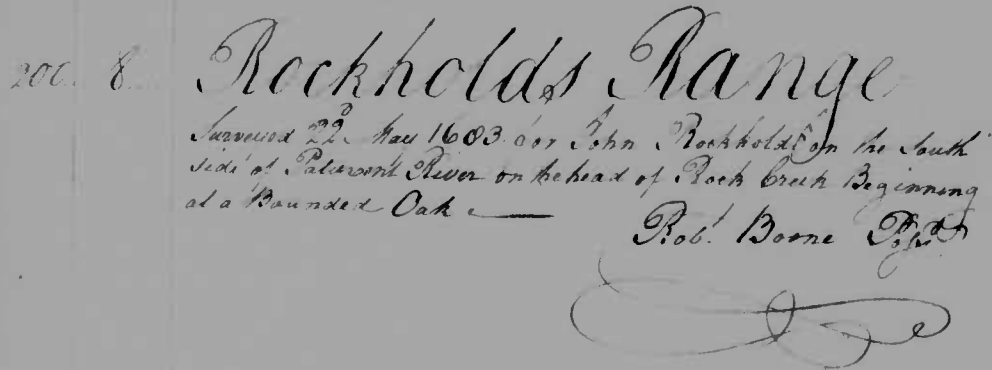 200. 8. Rockholds Range
Surveyed 22d. May 1683 for John Rockhold on the South
side of Patuxent River on the head of Rock Creek Beginning
at a Bounded Oak
Robt. Boone Possr